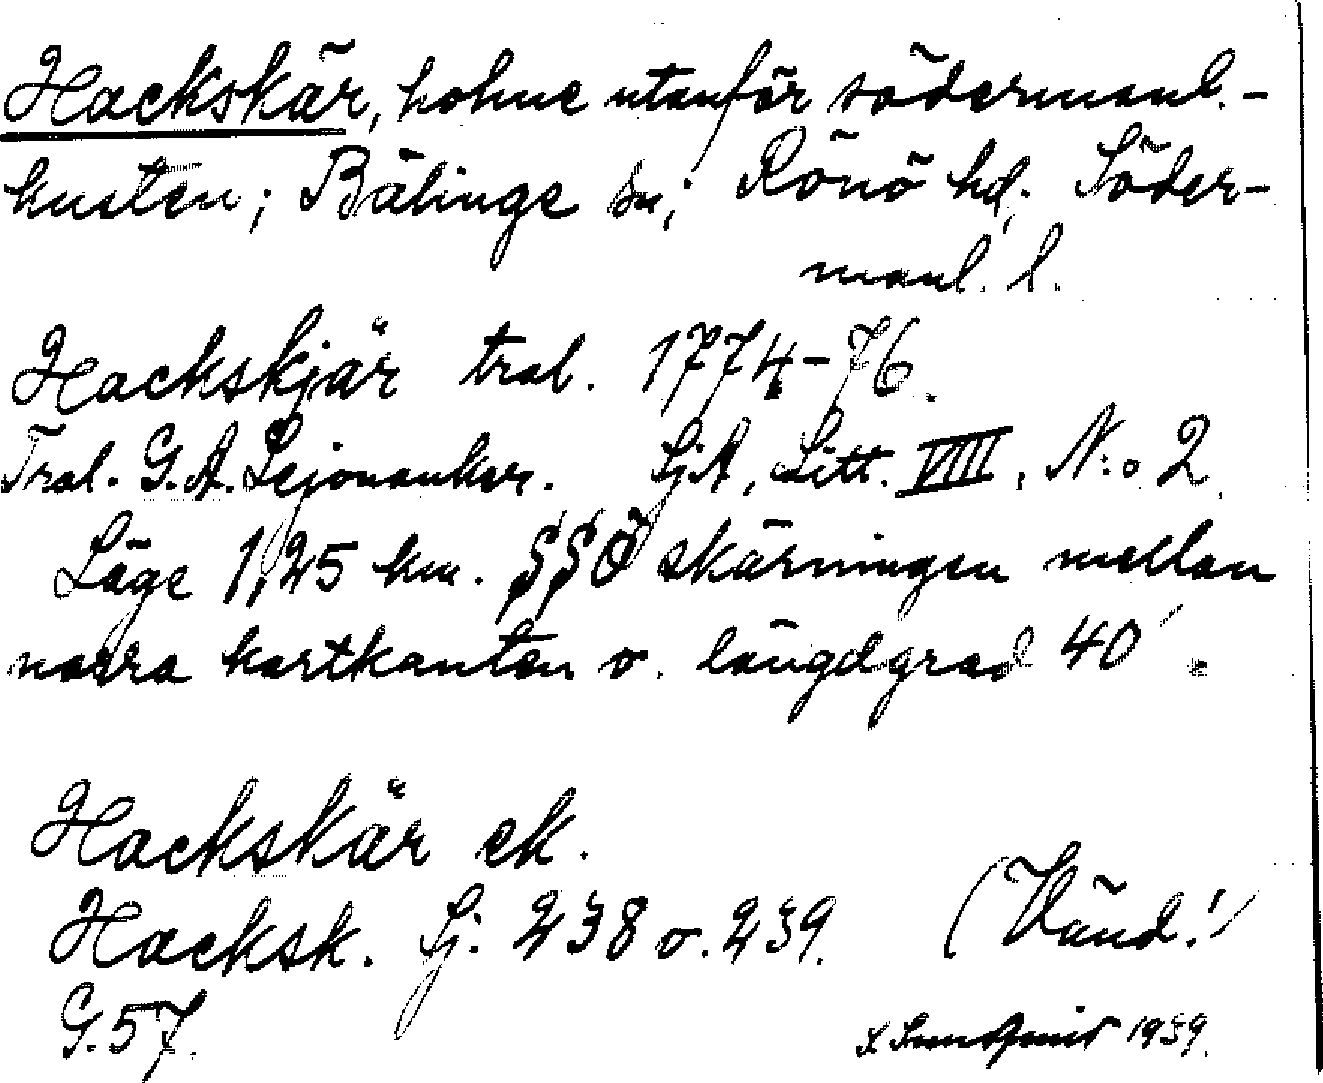 Hackskär, holme utanför södermanl.-
kusten; Bälinge sn; Rönö hd. Söder-
manl. l.
Hackskjär tral. 1774-76.
Tral. G. A. Lejonanker. SjA, Litt. VIII, N:o 2.
Läge 1,25 km. SSÖ skärningen mellan
norra kartkanten o. längdgrad 40´.
Hackskär ek.
Hacksk. Sj. 238 o. 239. (Vänd!)
G. 57. Sundqvist 1939.